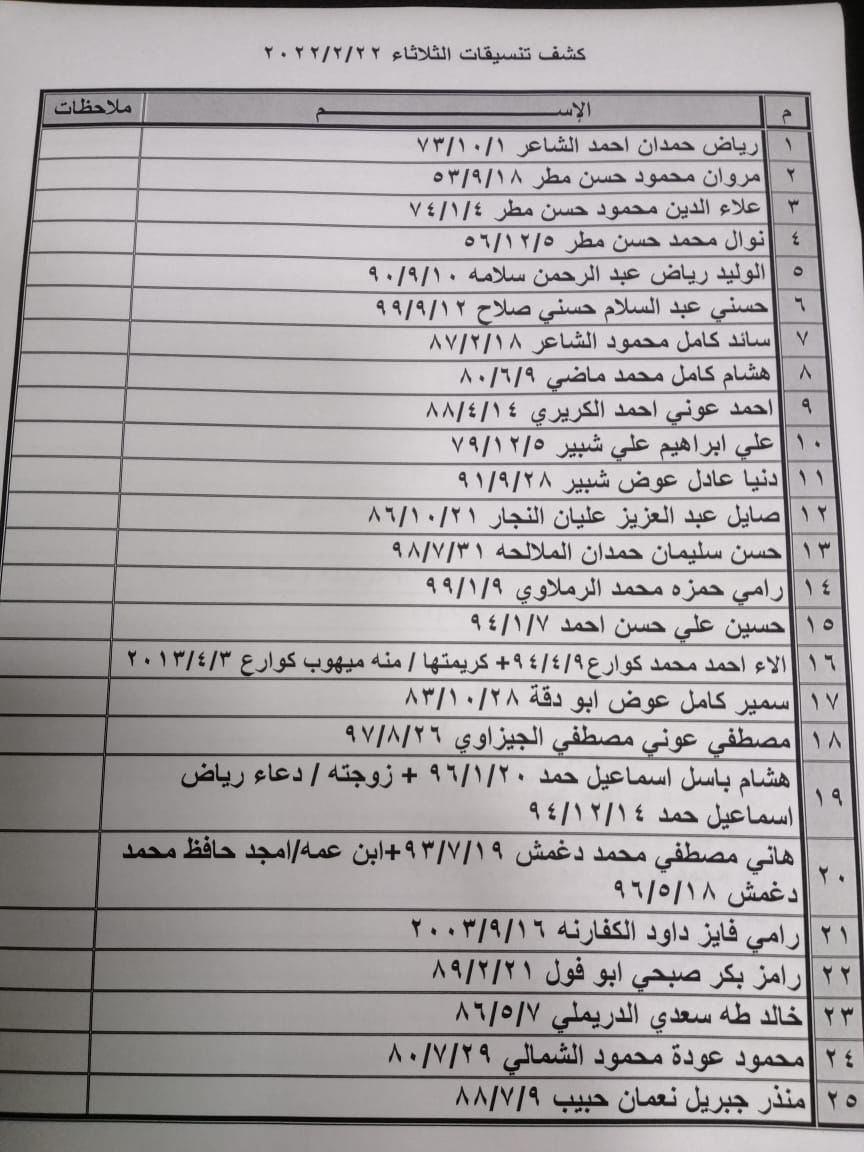 كشف تنسيقات الثلاثاء ٢٠٢٢/٢/٢٢
م الإســـــــــم ملاحظات
١ رياض حمدان احمد الشاعر ٧٣/١٠/١
٢ مروان محمود حسن مطر ٥٣/٩/١٨
٣ علاء الدين محمود حسن مطر ٧٤/١/٤
٤ نوال محمد حسن مطر ٥٦/١٢/٥
٥ الوليد رياض عبد الرحمن سلامه ٩٠/٩/١٠
٦ حسني عبد السلام حسني صلاح ٩٩/٩/١٢
٧ سائد كامل محمود الشاعر ٨٧/٢/١٨
٨ هشام كامل محمد ماضي ٨٠/٦/٩
٩ احمد عوني احمد الكريري ٨٨/٤/١٤
١٠ علي ابراهيم علي شبير ٧٩/١٢/٥
١١ دنيا عادل عوض شبير ٩١/٩/٢٨
١٢ صايل عبد العزيز عليان النجار ٨٦/١٠/٢١
١٣ حسن سليمان حمدان الملالحه ٩٨/٧/٣١
١٤ رامي حمزه محمد الرملاوي ٩٩/١/٩
١٥ حسين علي حسن احمد ٩٤/١/٧
١٦ الاء احمد محمد كوارع٩٤/٤/٩+ كريمتها / منه ميهوب كوارع ٢٠١٣/٤/٣
١٧ سمير كامل عوض ابو دقة ٨٣/١٠/٢٨
١٨ مصطفي عوني مصطفي الجيزاوي ٩٧/٨/٢٦
١٩ هشام باسل اسماعيل حمد ٩٦/١/٢٠ + زوجته / دعاء رياض
اسماعيل حمد ٩٤/١٢/١٤
٢٠ هاني مصطفي محمد دغمش ٩٣/٧/١٩+ابن عمه/امجد حافظ محمد
دغمش ٩٦/٥/١٨
٢١ رامي فايز داود الكفارنه ٢٠٠٣/٩/١٦
٢٢ رامز بكر صبحي ابو فول ٨٩/٢/٢١
٢٣ خالد طه سعدي الدريملي ٨٦/٥/٧
٢٤ محمود عودة محمود الشمالي ٨٠/٧/٢٩
٢٥ منذر جبريل نعمان حبيب ٨٨/٧/٩